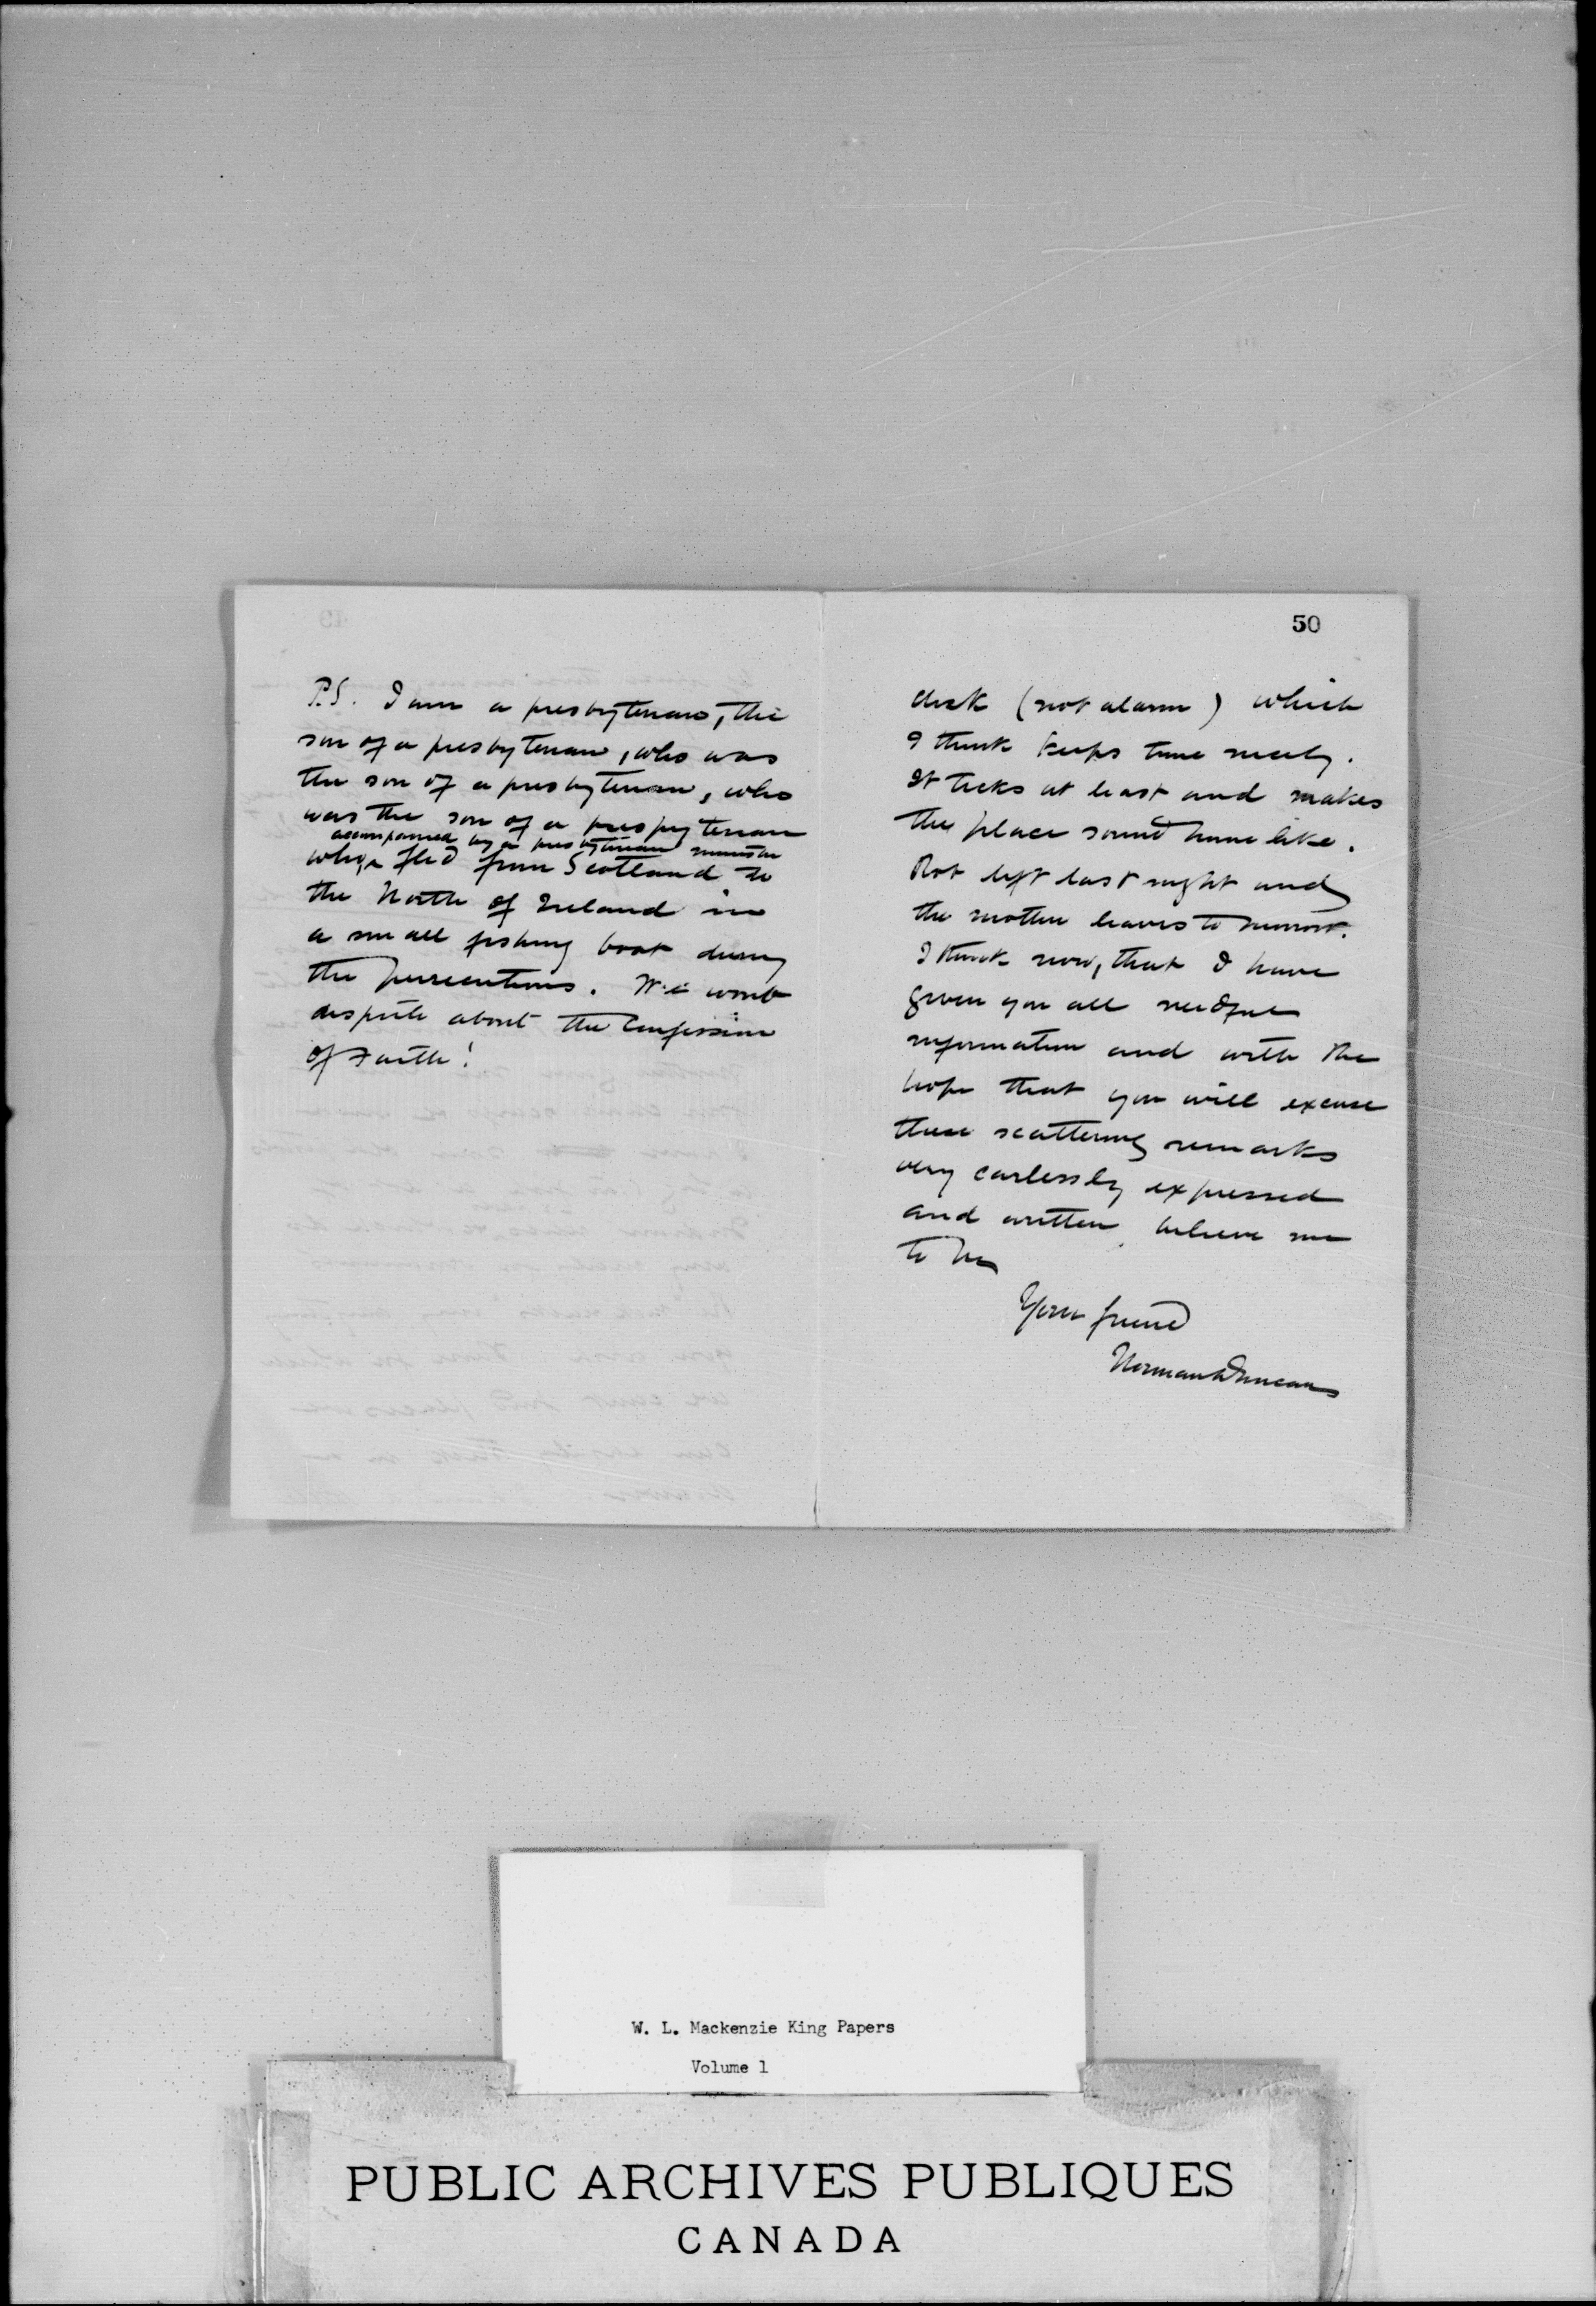 P.S. I am a presbyterian, the
son of a presbyterian, who was
the son of a presbyterian, who
was the son of a prespyterian
accompanied by a presbyterian minister
who, fled from Scotland to
the North of Ireland in
a small fishing boat during
the persecutions. We wont
dispute about the Confession
of Faith!
50
clock (not alarm) which
I think keeps time nicely.
It ticks at least and makes
the place sound home like.
Rob left last night and
the mother leaves to morrow.
I think now, that I have
given you all needful
information and with the
hope that you will excuse
these scattering remarks
very carlessly expressed
and written, believe me
to be
Your friend
Norman Duncan
W. L. Mackenzie King Papers
Volume 1
PUBLIC ARCHIVES PUBLIQUES
CANADA